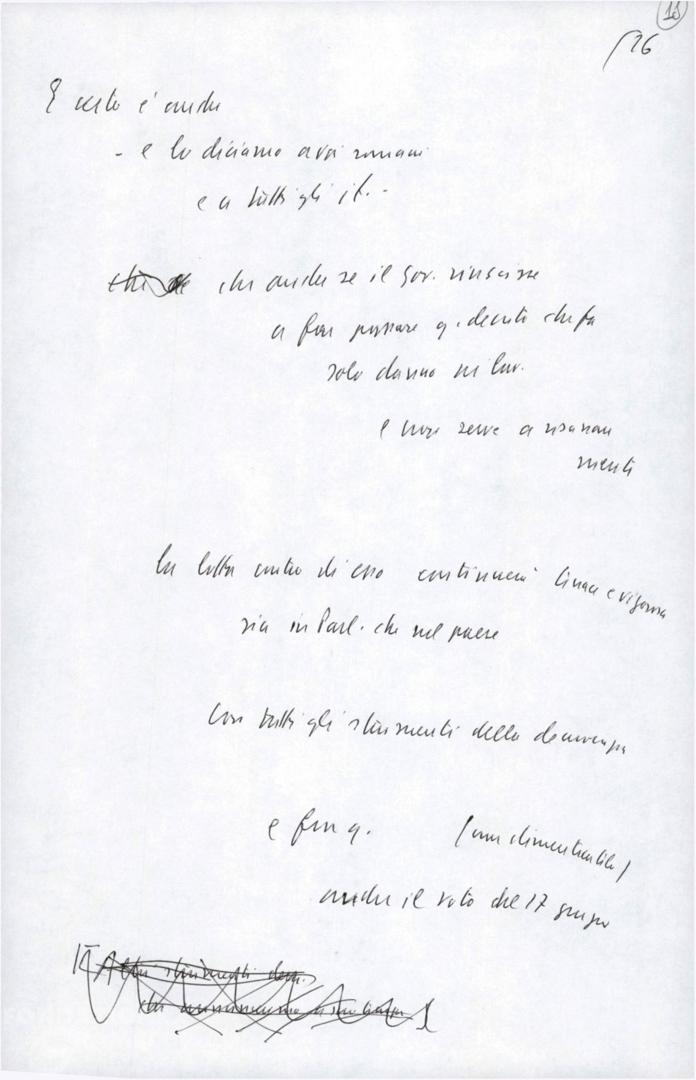 18
/26
E certo è anche
- e lo diciamo a voi romani
e a tutti gli it. -
che anche se il gov. riuscisse
a far passare q. decreto che fa
solo danno ai lav.
e non serve a risanam
menti
la lotta contro di esso continuerà tenace e vigorosa
sia in Parl. che nel paese
con tutti gli strumenti della democrazia
e fra q. (non dimenticatelo)
anche il voto del 17 giugno
Altri strumenti dem.
che